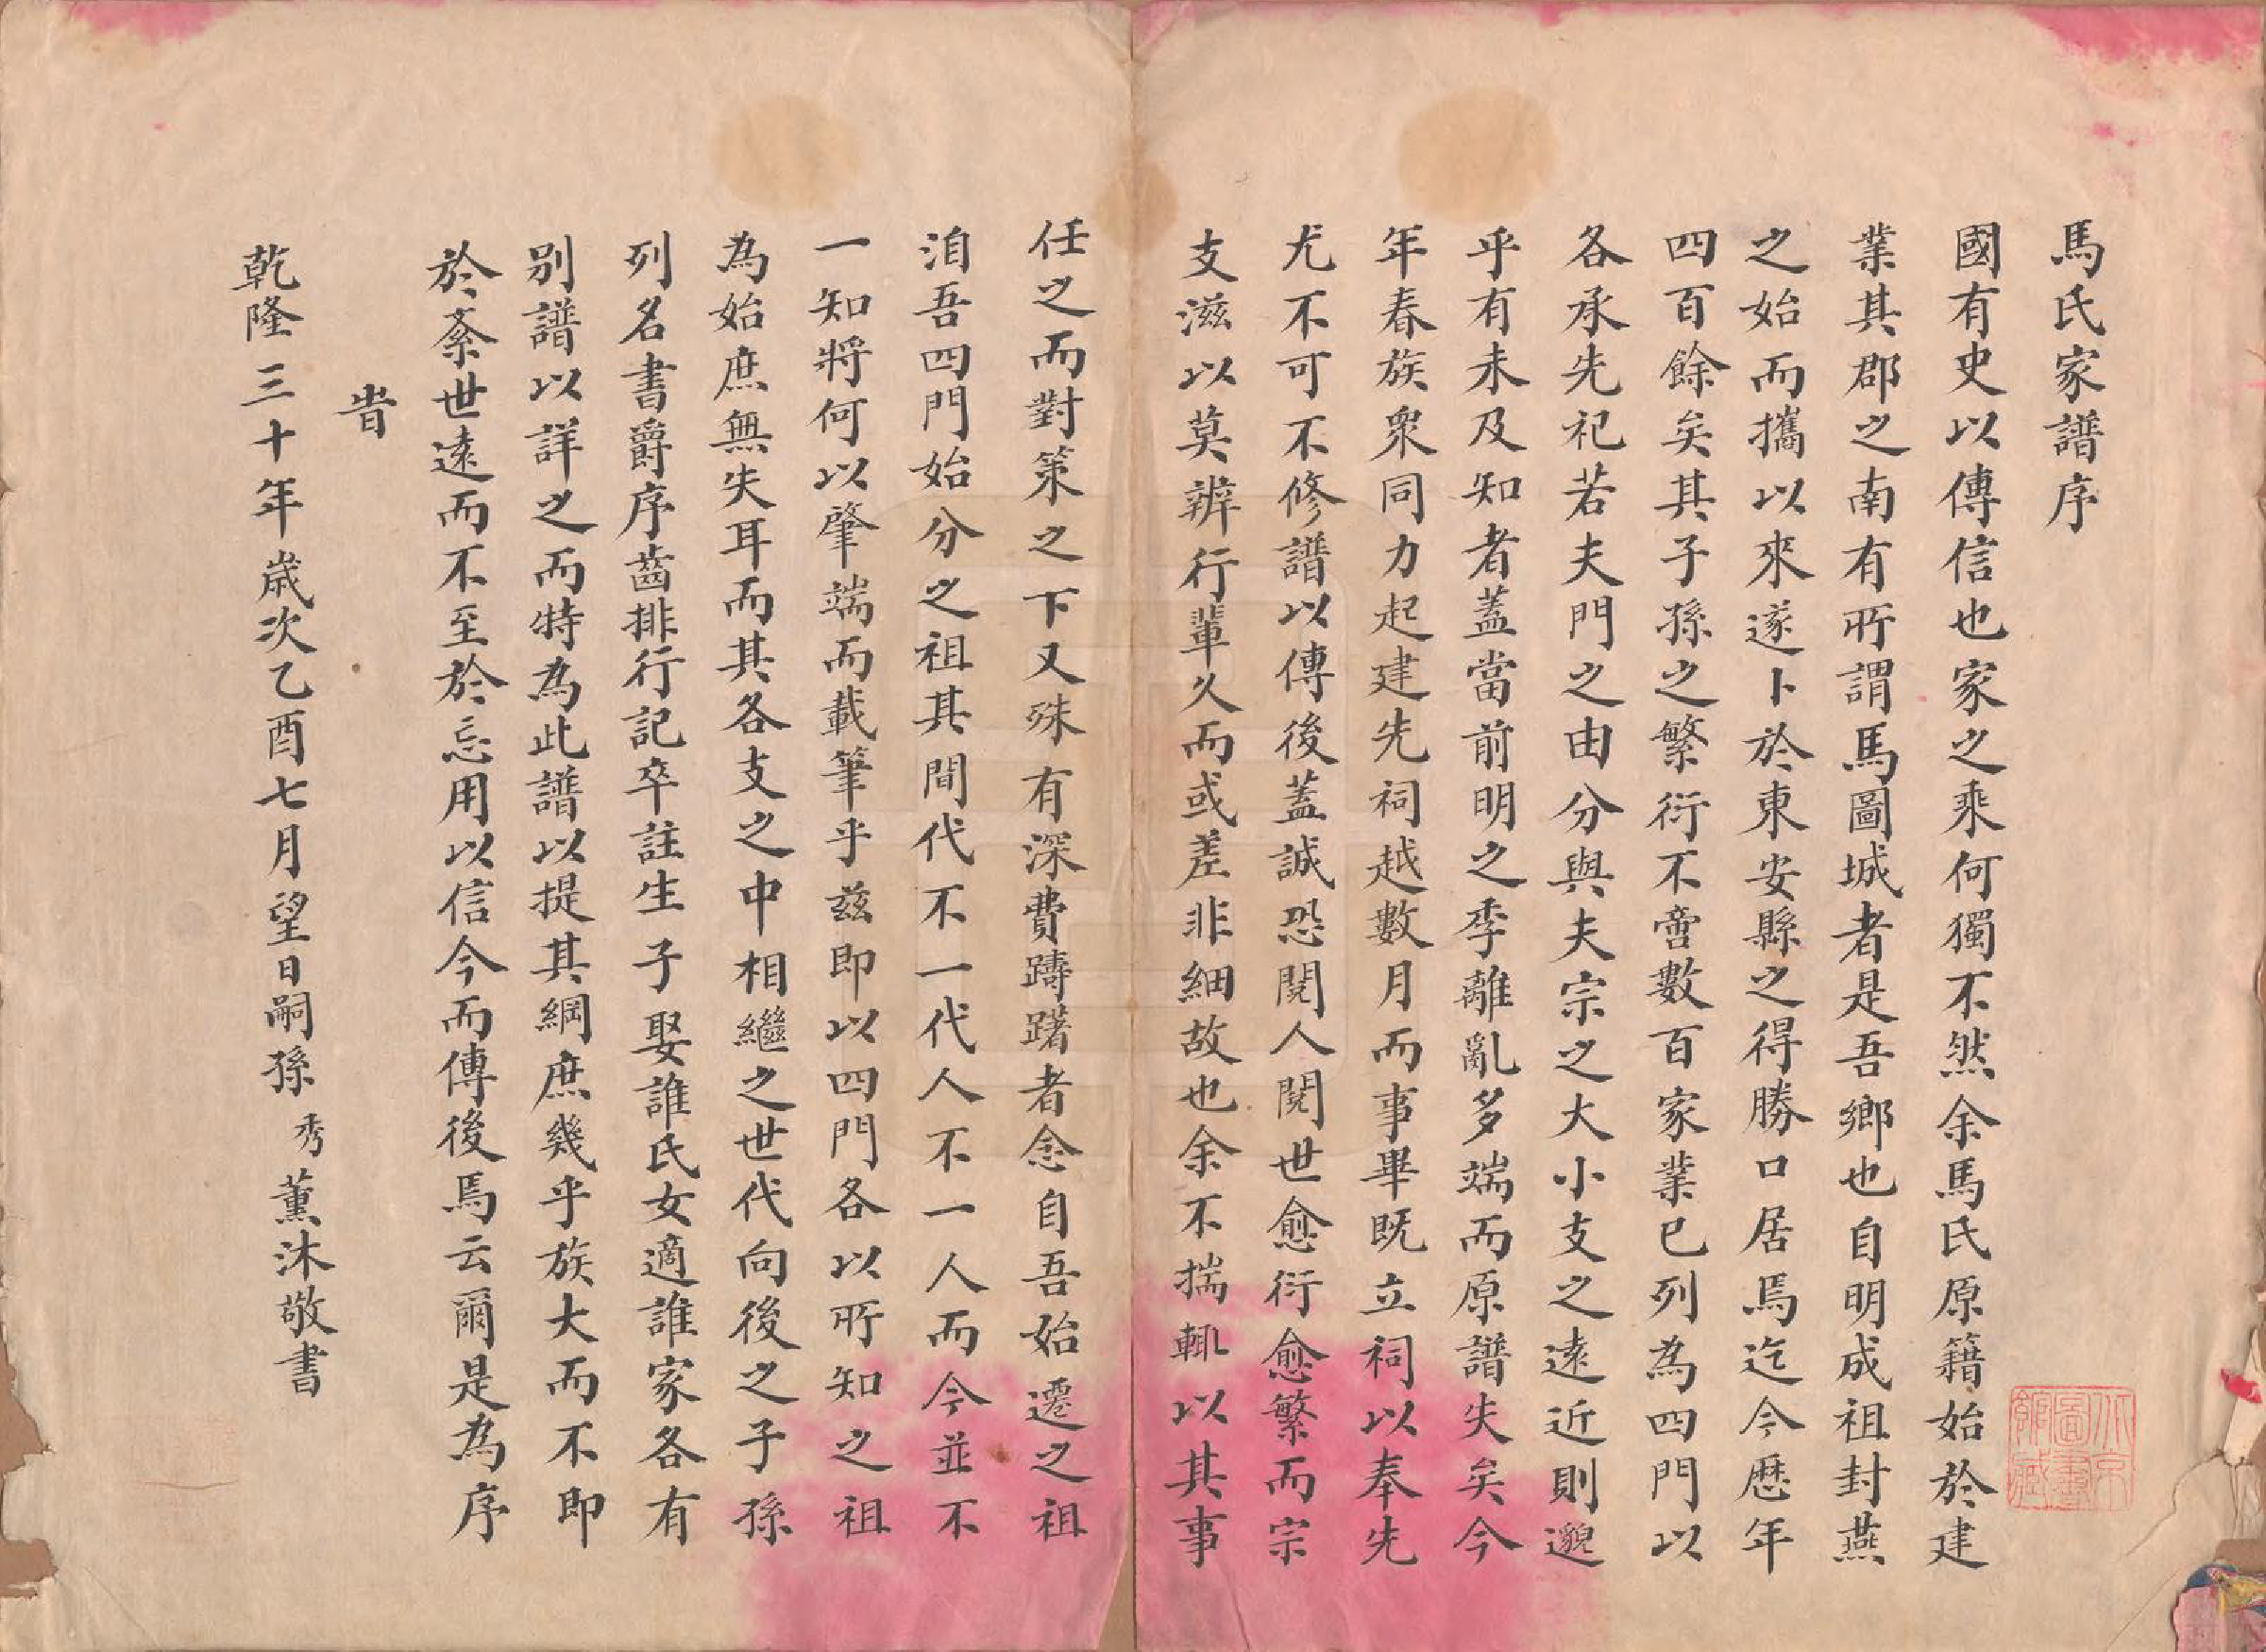 馬氏家譜序
國有史以傳信也家之乘何獨不然余馬氏原籍始於建
業其郡之南有所謂馬圖城者是吾鄉也自明成祖封燕
之始而攜以來遂卜於東安縣之得勝口居焉迄今歷年
四百餘矣其子孫之繁衍不啻數百家業已列為四門以
各承先祀若夫門之由分與夫宗之大小支之遠近則邈
乎有未及知者蓋當前明之季離亂多端而原譜失矣今
年春族眾同力起建先祠越數月而事畢既立祠以奉先
尤不可不修譜以傳後蓋誠恐閱人閱世愈衍愈繁而宗
支滋以莫辨行輩久而或差非細故也余不揣輒以其事
任之而對策之下又殊有深費躊躇者念自吾始遷之祖
洎吾四門始分之祖其間代不一代人不一人而今並不
一知將何以肇端而載筆乎茲即以四門各以所知之祖
為始庶無失耳而其各支之中相繼之世代向後之子孫
列名書爵序齒排行記卒註生子娶誰氏女適誰家各有
別譜以詳之而特為此譜以提其綱庶幾乎族大而不即
於紊世遠而不至於忘用以信今而傳後焉云爾是為序
旹
乾隆三十年歲次乙酉七月望日嗣孫秀薰沐敬書
北京圖書館藏